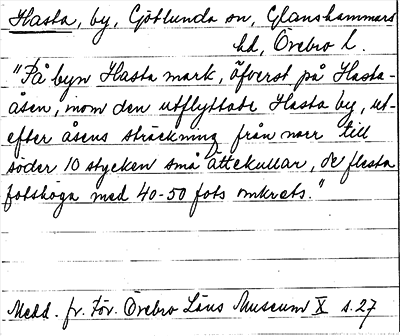 Hasta, by, Götlunda sn, Glanshammars
hd, Örebro l.
"På byn Hasta mark, öfverst på Hasta-
åsen, inom den utflyttade Hasta by, ut-
efter åsens sträckning från norr till
söder 10 stycken små ättekullar, de flesta
fotshöga med 40-50 fots omkrets."
Medd. fr. För. Örebro Läns Museum X s. 27